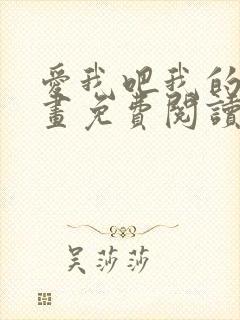 愛我吧我的
畫免費閱讀
吴莎莎